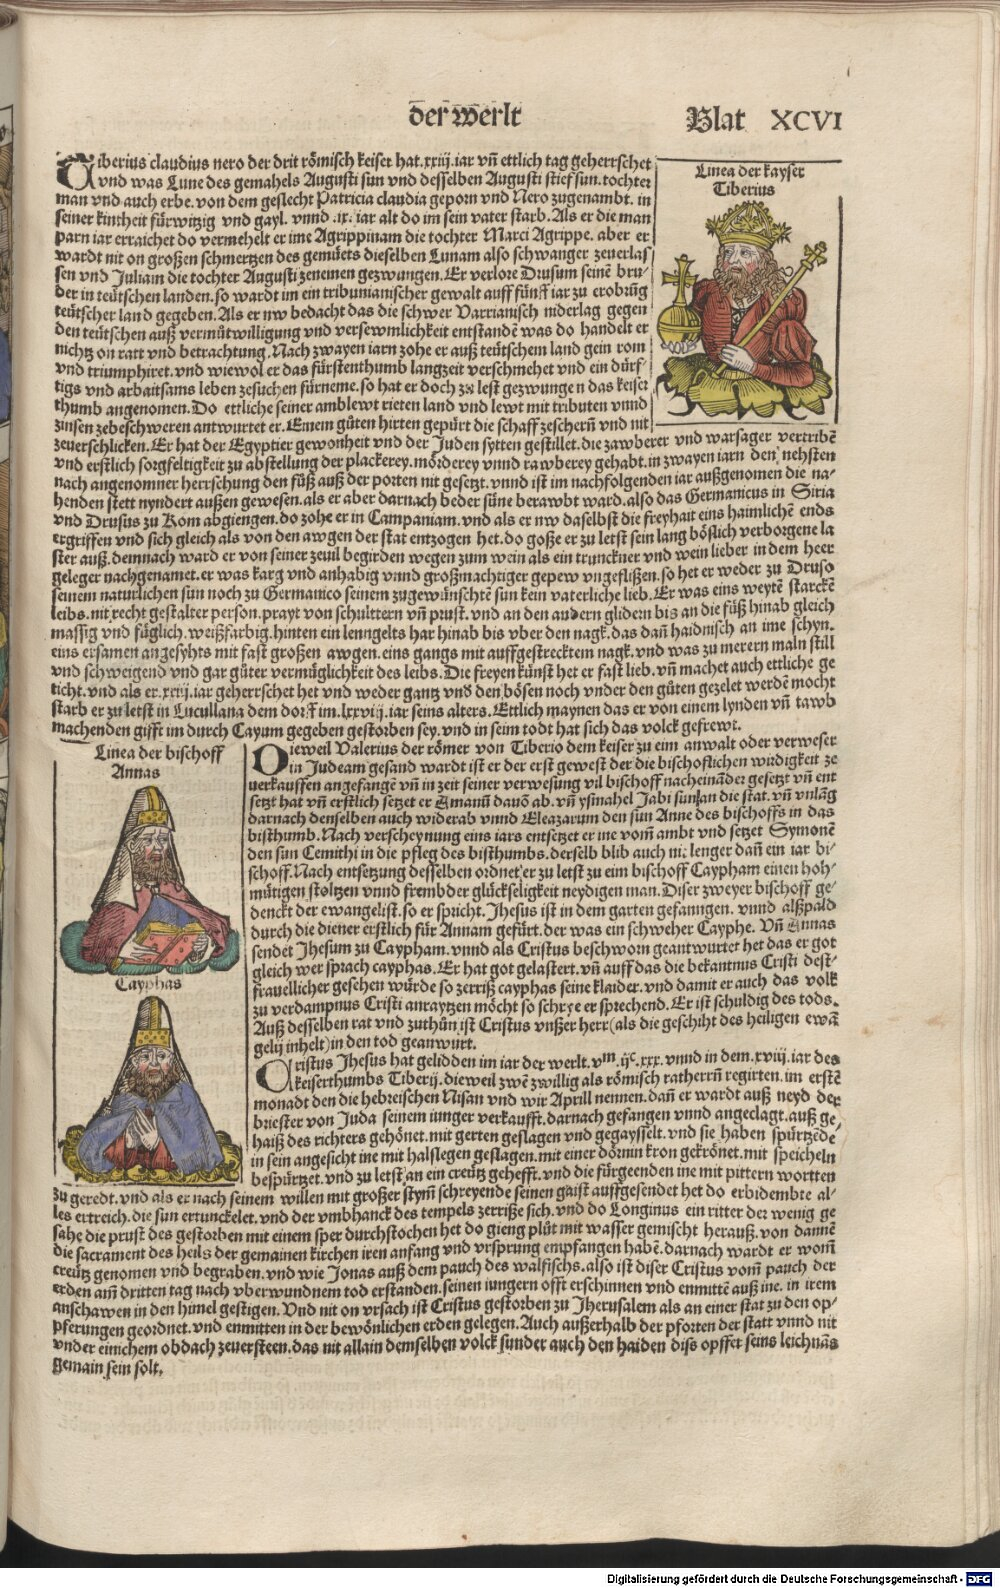 der werlt
Blat XCVI
Tiberius claudius nero der drit römisch keiser hat .xxiij. iar vñ ettlich tag geherrschet
vnd was Lune des gemahels Augusti sun vnd desselben Augusti stief sun. tochter
man vnd auch erbe. von dem geslecht Patricia claudia geporn vnd Nero zugenambt. in
seiner kintheit fürwitzig vnd gayl. vnnd .ix. iar alt do im sein vater starb. Als er die man
parn iar erraichet do vermehelt er ime Agrippinam die tochter Marci Agrippe. aber er
wardt nit on großen schmertzen des gemüets dieselben Lunam also schwanger zeuerlas
sen vnd Juliam die tochter Augusti zenemen gezwungen. Er verlore Drusum seinē bru-
der in teütschen landen. so wardt im ein tribunianischer gewalt auff fünff iar zu erobrūg
teütscher land gegeben. Als er nw bedacht das die schwer Varrianisch niderlag gegen
den teütschen auß vermütwilligung vnd versewmlichkeit entstandē was do handelt er
nichtz on ratt vnd betrachtung. Nach zwayen iarn zohe er auß teütschem land gein rom
vnd triumphiret. vnd wiewol er das fürstenthumb langzeit verschmehet vnd ein dürf-
tigs vnd arbaitsams leben zesuchen fürneme. so hat er doch zu lest gezwungen das keiser
thumb angenomen. Do ettliche seiner amblewt rieten land vnd lewt mit tributen vnnd
zinsen zebeschweren antwurtet er. Einem güten hirten gepürt die schaff zeschern vnd nit
zeuerschlicken. Er hat der Egyptier gewonheit vnd der Juden sytten gestillet. die zawberer vnd warsager vertribē
vnd erstlich sorgfeltigkeit zu abstellung der plackerey. mörderey vnnd rawberey gehabt. in zwayen iarn den nehsten
nach angenomner herrschung den füß auß der porten nit gesetzt. vnnd ist im nachfolgenden iar außgenomen die na-
henden stett nyndert außen gewesen. als er aber darnach beder süne berawbt ward. also das Germanicus in Siria
vnd Drusus zu Rom abgiengen. do zohe er in Campaniam. vnd als er nw daselbst die freyhait eins haimlichē ends
ergriffen vnd sich gleich als von den awgen der stat entzogen het. do goße er zu letst sein lang böslich verborgene la
ster auß. demnach ward er von seiner zeuil begirden wegen zum wein als ein trunckner vnd wein lieber in dem heer
geleger nachgenamet. er was karg vnd anhabig vnnd großmachtiger gepew vngeflißen. so het er weder zu Druso
seinem naturlichen sun noch zu Germanico seinem zugewünschtē sun kein vaterliche lieb. Er was eins weytē starckē
leibs. nit recht gestalter person. prayt von schulttern vñ prust. vnd an den andern glidern bis an die füß hinab gleich
massig vnd füglich. weißfarbig. hinten ein lenngelts har hinab bis vber den nagk. das dañ haidnisch an ime schyn.
eins ersamen angesyhts mit fast großen awgen. eins gangs mit auffgestrecktem nagk. vnd was zu merern maln still
vnd schweigend vnd gar güter vermüglichkeit des leibs. Die freyen künst het er fast lieb. vñ machet auch ettliche ge
ticht. vnd als er .xxiij. iar geherrschet het vnd weder gantz vnd den bösen noch vnder den güten gezelet werdē mocht
starb er zu letst in Lucullana dem dorff im .lxxviij. iar seins alters. Ettlich maynen das er von einem lynden vñ tawb
machenden gifft im durch Cayum gegeben gestorben sey. vnd in seim todt hat sich das volck gefrewt.
Linea der kayser
Tiberius
Linea der bischoff
Annas
Cayphas
Dieweil Valerius der römer von Tiberio dem keiser zu eim anwalt oder verweser
in Judeam gesand wardt ist er der erst gewest der die bischoflichen wirdigkeit ze
verkauffen angefangē vñ in zeit seiner verwesung vil bischoff nacheinander gesetzt vñ ent
setzt hat vñ erstlich setzet er Amanū dauō ab. vñ ysmahel Jabi sun an die stat. vñ vnlāg
darnach denselben auch widerab vnnd Eleazarum den sun Anne des bischoffs in das
bisthumb. Nach verscheynung eins iars entsetzet er ine vom ambt vnd setzet Symonē
den sun Cemithi in die pfleg des bisthumbs. derselb blib auch nit lenger dañ ein iar bi-
schoff. Nach entsetzung desselben ordnet er zu letst zu eim bischoff Caypham einen hoh-
mütigen stoltzen vnnd frembder glückseligkeit neydigen man. Diser zweyer bischoff ge-
denckt der ewangelist. so er spricht. Jhesus ist in dem garten gefanngen. vnnd alßpald
durch die diener erstlich für Annam gefürt. der was ein schweher Cayphe. Vñ Annas
sendet Jhesum zu Caypham. vnnd als Cristus beschworn geantwurtet het das er got
gleich wer sprach cayphas. Er hat got gelastert. vñ auff das die bekantnus Cristi dest-
frauellicher gesehen würde so zerriß cayphas seine klaider. vnd damit er auch das volk
zu verdampnus Cristi anraytzen möcht so schrye er sprechend. Er ist schuldig des tods.
Auß desselben rat vnd zuthün ist Cristus vnßer herr (als die geschiht des heiligen ewā
gelij inhelt) in den tod geanwurt.
Cristus Jhesus hat gelidden im iar der werlt .vm. ijc. xxx. vnnd in dem .xviij. iar des
keiserthumbs Tiberij. dieweil zwē zwillig als römisch ratherrñ regirten. im erstē
monadt den die hebreischen Nisan vnd wir Aprill nennen. dañ er wardt auß neyd der
briester von Juda seinem iunger verkaufft. darnach gefangen vnnd angeclagt. auß ge
haiß des richters gehönet. mit gerten geslagen vnd gegaysselt. vnd sie haben spürtzēde
in sein angesicht ine mit halslegen geslagen. mit einer dörnin kron gekrönet. mit speicheln
bespürtzet. vnd zu letst an ein creütz gehefft. vnd die fürgeenden ine mit pittern wortten
zu geredt. vnd als er nach seinem willen mit großer stym schreyende seinen gaist auffgesendet het do erbidembte al-
les ertreich. die sun ertunckelet. vnd der vmbhanck des tempels zerriße sich. vnd do Longinus ein ritter der wenig ge
sahe die prust des gestorben mit einem sper durchstochen het do gieng plüt mit wasser gemischt herauß. von dannē
die sacrament des heils der gemainen kirchen iren anfang vnd vrsprung empfangen habē. darnach wardt er vom
creütz genomen vnd begraben. vnd wie Jonas auß dem pauch des walfischs. also ist diser Cristus vom pauch der
erden am dritten tag nach vberwundnem tod erstanden. seinen iungern offt erschinnen vnd enmitten auß ine. in irem
anschawen in den himel gestigen. Vnd nit on vrsach ist Cristus gestorben zu Jherusalem als an einer stat zu den op-
pferungen geordnet. vnd enmitten in der bewönlichen erden gelegen. Auch außerhalb der pforten der statt vnnd nit
vnder einichem obdach zeuersteen. das nit allain demselben volck sunder auch den haiden diss opffer seins leichnās
gemain sein solt.
Digitalisierung gefördert durch die Deutsche Forschungsgemeinschaft - DFG